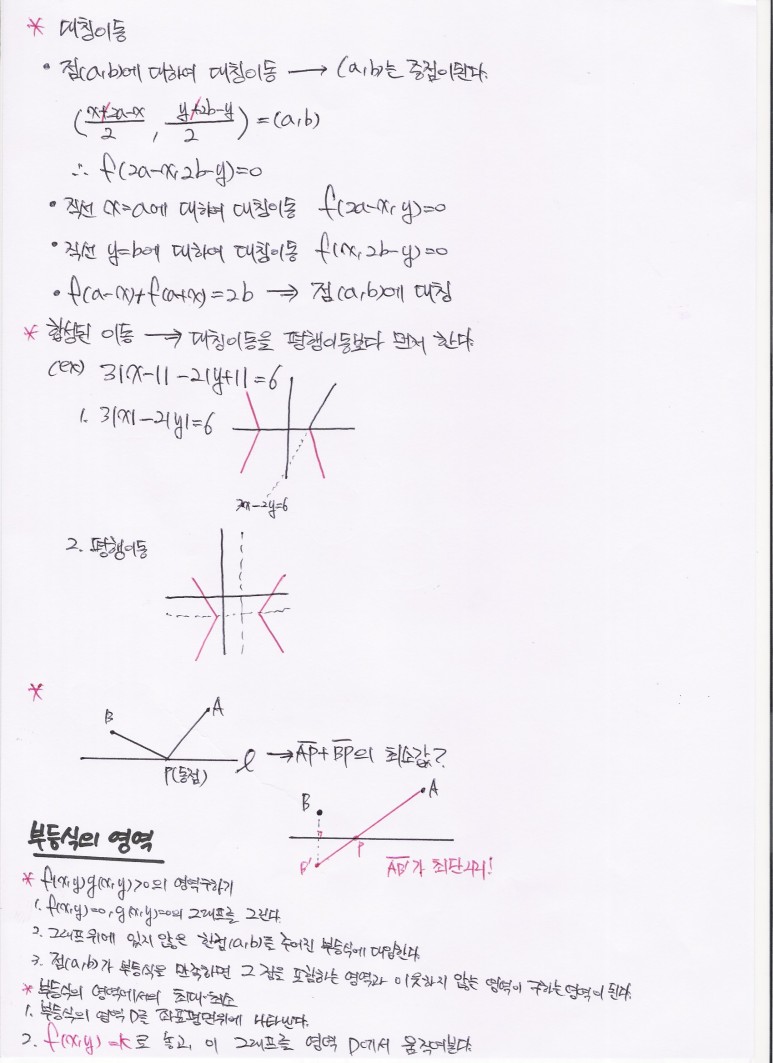 * 대칭이동
• 점(a,b)에 대하여 대칭이동 → (a,b)는 중점이된다.
(x+2a-x/2, y+2b-y/2) = (a,b)
∴ f(2a-x, 2b-y)=0
• 직선 x=a에 대하여 대칭이동 f(2a-x, y)=0
• 직선 y=b에 대하여 대칭이동 f(x, 2b-y)=0
• f(a-x)+f(a+x)=2b ⇒ 점(a,b)에 대칭
* 합성된 이동 → 대칭이동을 평행이동보다 먼저 한다.
(ex) 3|x-1|-2|y+1|=6
1. 3|x|-2|y|=6
3x-2y=6
2. 평행이동
*
B
A
P(동점)
l → AP+BP의 최소값?
B
A
B'
P
AB'가 최단거리!
부등식의 영역
* f(x,y)g(x,y)>0의 영역구하기
1. f(x,y)=0, g(x,y)=0의 그래프를 그린다.
2. 그래프위에 있지 않은 한점(a,b)를 주어진 부등식에 대입한다.
3. 점(a,b)가 부등식을 만족하면 그 점을 포함하는 영역과 이웃하지 않는 영역이 구하는 영역이 된다.
* 부등식의 영역에서의 최대·최소
1. 부등식의 영역 D를 좌표평면위에 나타낸다.
2. f(x,y)=k로 놓고, 이 그래프를 영역 D에서 움직여본다.